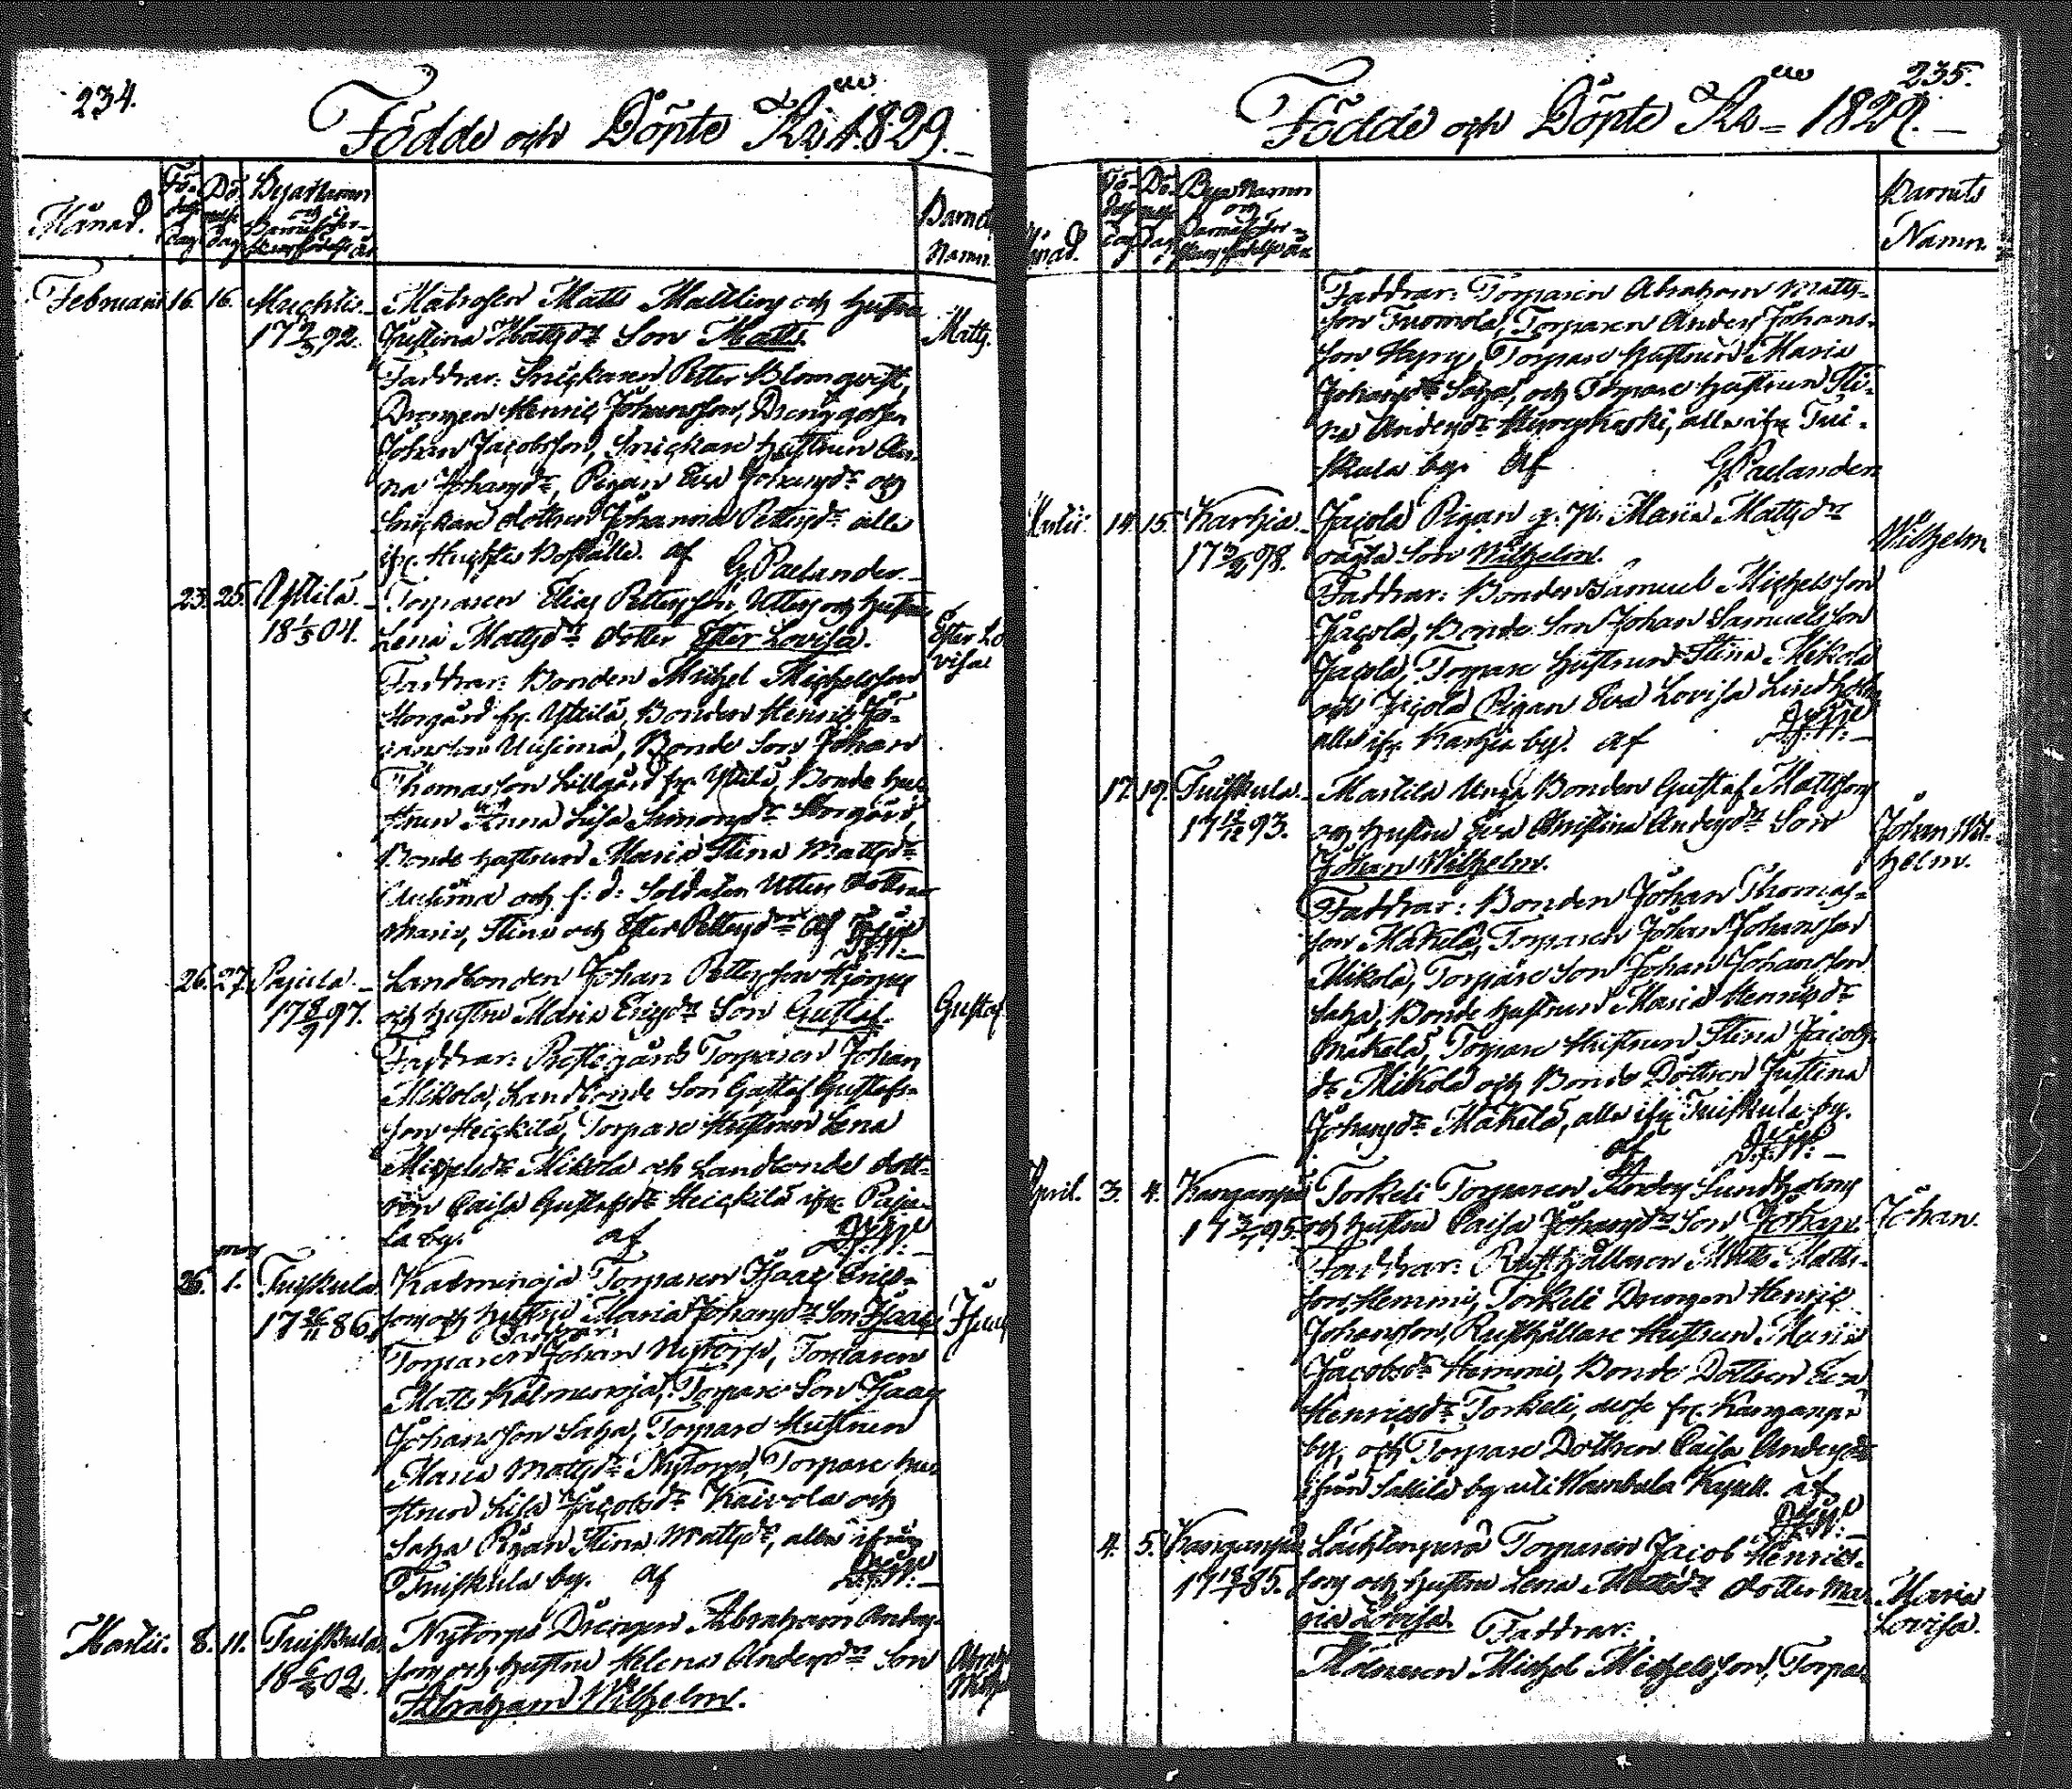 234.
Födde och Döpte År 1829.
Månad.
Fö-
delse
dag
Dö
pelse
dag
Bya Namn
och
Barnaföder-
skans födelse år
Barnets
Namn.
Februarii 16. 16. 
1792.
Matrosen Matts Malling och hustru
Justina Mattsdr Son Matts
Matts.
Faddrar: Snickaren Petter Blomqvist,
Drengen Henric Johansson, Drenggossen
Johan Jacobsson, Snickare hustrun An-
na Johansdr, Pigan Eva Johansdr och
Snickare dottren Johanna Pettersdr alla
ifr. Boställe. af G. Paelander.
23. 25. Yttilä.
18 1/3 04.
Torparen Elias Pettersson Utter och hustru
Lena Mattsdr dotter Ester Lovisa.
Ester Lo
visa
Faddrar: Bonden Michel Michelsson
Storgård fr. Yttilä, Bonden Henric Jo-
hansson Uusima, Bonde Son Johan
Thomasson Lillgård fr. Yttilä, Bonde hu-
strun Anna Lisa Simonsdr Storgård,
Bonde hustrun Maria Stina Mattsdr
Uusima och f: d: Soldaten Utters dottrar
Maria, Stina och Ester Pettersdr af
26. 27. Pajula.
1797.
Landbonden Johan Pettersson
och hustru Maria Ericsdr Son Gustaf.
Gustaf.
Faddrar: Prestegårds Torparen Johan
Mikola, Landbonde Son Gustaf Gustafs-
son Heickilä, Torpare Hustrun Lena
Michelsdr Mikola och Landbonde dott-
ren Caisa Gustafsdr Heickilä ifr. Paju-
la by. af
26. 1. Tuiskula
17 26/11 86.
Kalminoja Torparen Isaac Erics-
son och hustru Maria Johansdr Son Isaac
Isaac
Faddrar:
Torparen Johan Nytorp, Torparen
Matts Kalminoja, Torpare Son Isaac
Johansson Saha, Torpare Hustrun
Maria Mattsdr Nytorp, Torpare hu-
strun Lisa Jacobsdr Kaivola och
Saha Pigan Stina Mattsdr, alla ifrån
Tuiskula by. af
Martii. 8. 11. Tuiskula
1802.
Nytorps Drengen Abraham Anders-
son och hustru Helena Andersdr Son
Abraham Wilhelm.
235.
Födde och Döpte År 1829.
Månad.
Fö-
Dö-
dag
dag
Bya Namn
och
Barnaföder-
skans födelse år
Barnets
Namn
Faddrar: Torparen Abraham Matts-
son Tuomola, Torparen Anders Johans-
son Hyry, Torpare hustrun Maria
Johansdr Saha, och Torpare hustrun Sti-
na Andersdr, alla ifr. Tui-
skula by. af G. Paelander
Martii. 14. 15. Karhia.
1798.
Jacola Pigan Maria Mattsdr
oägta Son Wilhelm.
Wilhelm
Faddrar: Bonden Samuel Michelsson
Jacola, Bonde Son Johan Samuelsson
Jacola, Torpare hustrun Stina Mikola
och Jacola Pigan Eva Lovisa Lindholm
alla ifr. Karhia by. af
17. 19. Tuiskula.
1793.
Martila Unga Bonden Gustaf Mattsson
och hustru Eva Christina Andersdr Son
Johan Wilhelm.
Johan Wil-
helm.
Faddrar: Bonden Johan Thomas-
son Mäkelä, Torparen Johan Johansson
Mikola, Torpare Son Johan Johansson
Saha, Bonde hustrun Maria Henricsdr
Mäkelä, Torpare Hustrun Stina Jacobs-
dr Mikola och Bonde Dottren Justina
Johansdr Mäkelä, alla ifr. Tuiskula by.
af
April. 3. 4. Kanganpä
1795.
Torkeli Torparen Anders Lundholm
och hustru Caisa Johansdr Son Johan.
Johan.
Faddrar: Rusthållaren Matts Matts-
son Hemmi, Torkeli Drengen Henric
Johansson, Rusthållare Hustrun Maria
Jacobsdr Hemmi, Bonde Dottren Eva
Henricsdr Torkeli, desse fr. Kanganpä
by, och Torpare Dottren Caisa Andersdr
ifrån Sallila by uti af
4. 5. Kanganpä
1785.
Torparen Jacob Henrics-
son och hustru Lena dotter Ma-
ria Lovisa.
Maria
Lovisa.
Faddrar:
Michel Michelsson, Torpa-